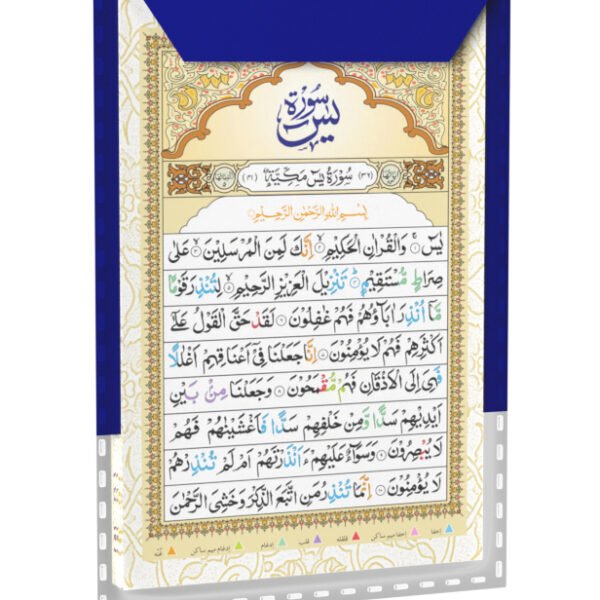 سُورَة
يٰسٓ
(٣٦) سُورَةُ يٰسٓ مَكِّيَّةٌ (٤١)
بِسْمِ اللهِ الرَّحْمٰنِ الرَّحِيْمِ
يٰسٓ ۝١ وَالْقُرْاٰنِ الْحَكِيْمِ ۝٢ اِنَّكَ لَمِنَ الْمُرْسَلِيْنَ ۝٣ عَلٰى
صِرَاطٍ مُّسْتَقِيْمٍ ۝٤ تَنْزِيْلَ الْعَزِيْزِ الرَّحِيْمِ ۝٥ لِتُنْذِرَ قَوْمًا
مَّآ اُنْذِرَ اٰبَآؤُهُمْ فَهُمْ غٰفِلُوْنَ ۝٦ لَقَدْ حَقَّ الْقَوْلُ عَلٰٓى
اَكْثَرِهِمْ فَهُمْ لَا يُؤْمِنُوْنَ ۝٧ اِنَّا جَعَلْنَا فِيْٓ اَعْنَاقِهِمْ اَغْلٰلًا
فَهِيَ اِلَى الْاَذْقَانِ فَهُمْ مُّقْمَحُوْنَ ۝٨ وَجَعَلْنَا مِنْۢ بَيْنِ
اَيْدِيْهِمْ سَدًّا وَّمِنْ خَلْفِهِمْ سَدًّا فَاَغْشَيْنٰهُمْ فَهُمْ
لَا يُبْصِرُوْنَ ۝٩ وَسَوَآءٌ عَلَيْهِمْ ءَاَنْذَرْتَهُمْ اَمْ لَمْ تُنْذِرْهُمْ
لَا يُؤْمِنُوْنَ ۝١٠ اِنَّمَا تُنْذِرُ مَنِ اتَّبَعَ الذِّكْرَ وَخَشِيَ الرَّحْمٰنَ
اخفا اخفا ميم ساكن قلقله قلب ادغام ادغام ميم ساكن غنه